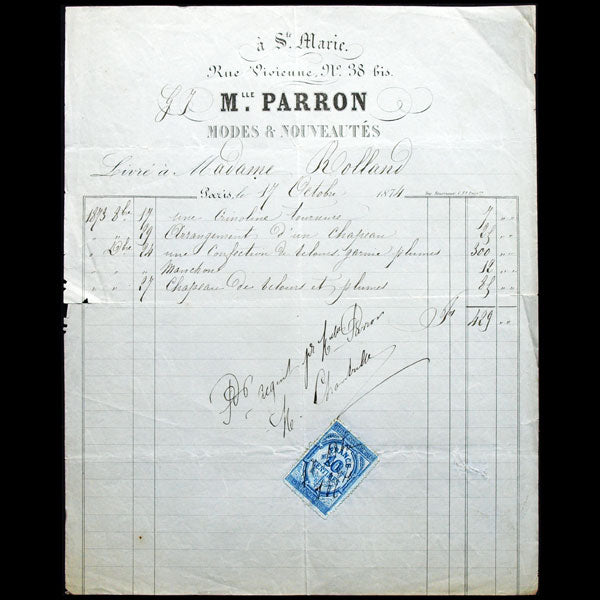 à Ste. Marie.
Rue Vivienne, No. 38 bis.
G J
MLLE. PARRON
MODES & NOUVEAUTÉS
Livré à Madame Rolland
Paris, le 17 Octobre 1874
1873 8bre 17 une Crinoline tournure 7 " "
" " 29 Arrangement D'un Chapeau "
" Xbre 24 une Confection de velours, garnie plumes 300 " "
" " " Manchon 12 "
" " 27 Chapeau de velours et plumes 85 "
429 " "
pr Melle Parron